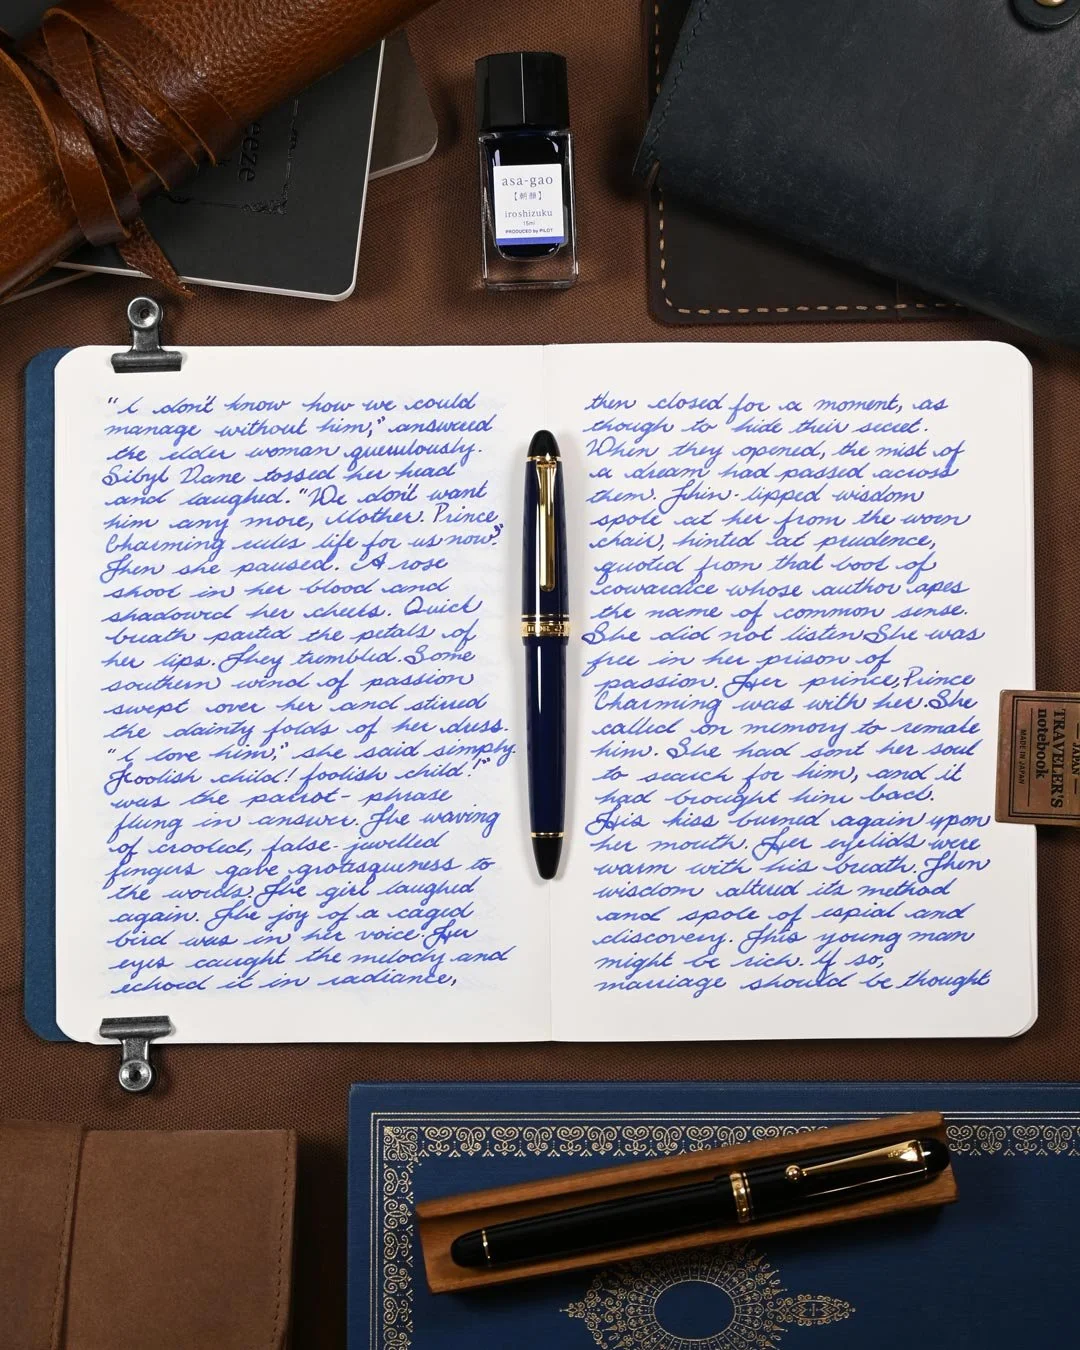 eeze
asa-gao
【朝顔】
iroshizuku
15ml
PRODUCED by PILOT
"I don't know how we could
manage without him," answered
the elder woman querulously.
Sibyl Vane tossed her head
and laughed. "We don't want
him any more, Mother. Prince
Charming rules life for us now."
Then she paused. A rose
shook in her blood and
shadowed her cheeks. Quick
breath parted the petals of
her lips. They trembled. Some
southern wind of passion
swept over her and stirred
the dainty folds of her dress.
"I love him," she said simply.
"Foolish child! foolish child!"
was the parrot-phrase
flung in answer. The waving
of crooked, false-jewelled
fingers gave grotesqueness to
the words. The girl laughed
again. The joy of a caged
bird was in her voice. Her
eyes caught the melody and
echoed it in radiance,
then closed for a moment, as
though to hide their secret.
When they opened, the mist of
a dream had passed across
them. Thin-lipped wisdom
spoke at her from the worn
chair, hinted at prudence,
quoted from that book of
cowardice whose author apes
the name of common sense.
She did not listen She was
free in her prison of
passion. Her prince, Prince
Charming was with her. She
called on memory to remake
him. She had sent her soul
to search for him, and it
had brought him back.
His kiss burned again upon
her mouth. Her eyelids were
warm with his breath. Then
wisdom altered its method
and spoke of espial and
discovery. This young man
might be rich. If so,
marriage should be thought
JAPAN
TRAVELER'S
notebook
MADE IN JAPAN